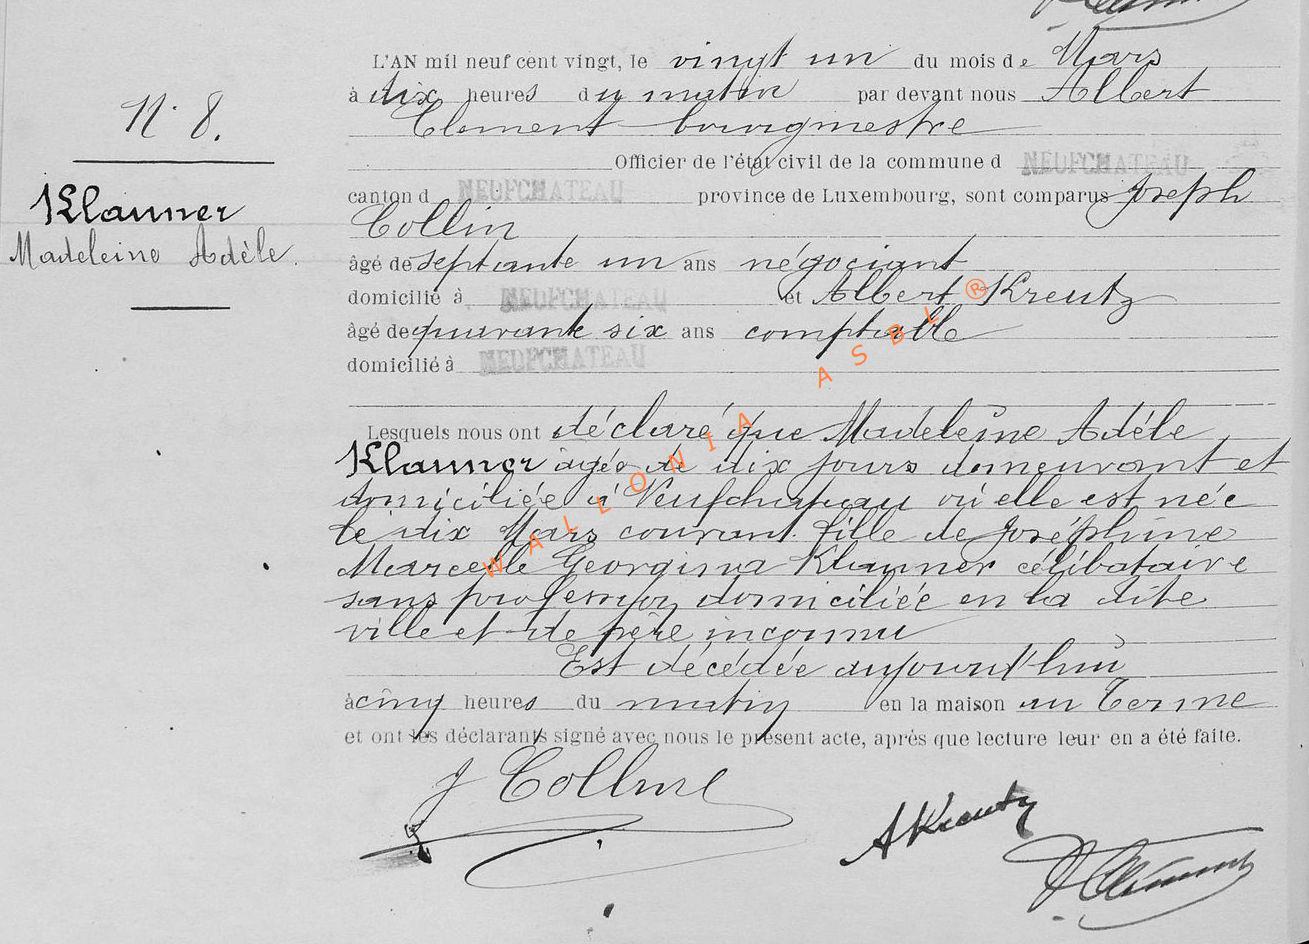 N° 8.
Klauner
Madeleine Adèle.
L'AN mil neuf cent vingt, le vingt un du mois de Mars
à dix heures du matin par devant nous Albert
Clement bourgmestre
Officier de l'état civil de la commune d NEUFCHATEAU
canton d NEUFCHATEAU province de Luxembourg, sont comparus Joseph
Collin
âgé de septante un ans négociant
domicilié à NEUFCHATEAU et Albert Kreutz
âgé de quarante six ans comptable
domicilié à NEUFCHATEAU
Lesquels nous ont déclaré que Madeleine Adèle
Klauner agée de dix jours demeurant et
domiciliée à Neufchateau où elle est née
le dix Mars courant fille de Joséphine
Marcelle Georgina Klauner célibataire
sans profession domiciliée en la dite
ville et de père inconnu
Est décédée aujourd'hui
à cinq heures du matin en la maison au Terme
et ont les déclarants signé avec nous le présent acte, après que lecture leur en a été faite.
J Collin
AKreutz
AClement
WALLONIA ASBL ®